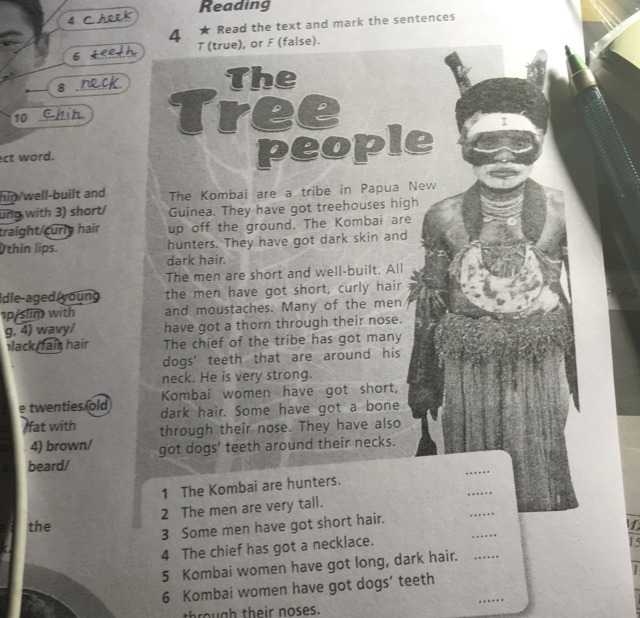 Reading
4 cheek
6 teeth
8 neck
10 chin
ect word.
/well-built and
with 3) short/
traight/curly hair
/thin lips.
ddle-aged/young
/slim with
g, 4) wavy/
black/fair hair
e twenties/old
/fat with
4) brown/
beard/
the
4 ★ Read the text and mark the sentences
T (true), or F (false).
The
Tree
people
The Kombai are a tribe in Papua New
Guinea. They have got treehouses high
up off the ground. The Kombai are
hunters. They have got dark skin and
dark hair.
The men are short and well-built. All
the men have got short, curly hair
and moustaches. Many of the men
have got a thorn through their nose.
The chief of the tribe has got many
dogs' teeth that are around his
neck. He is very strong.
Kombai women have got short,
dark hair. Some have got a bone
through their nose. They have also
got dogs' teeth around their necks.
1 The Kombai are hunters. ......
2 The men are very tall. ......
3 Some men have got short hair. ......
4 The chief has got a necklace. ......
5 Kombai women have got long, dark hair. ......
6 Kombai women have got dogs' teeth
through their noses. ......